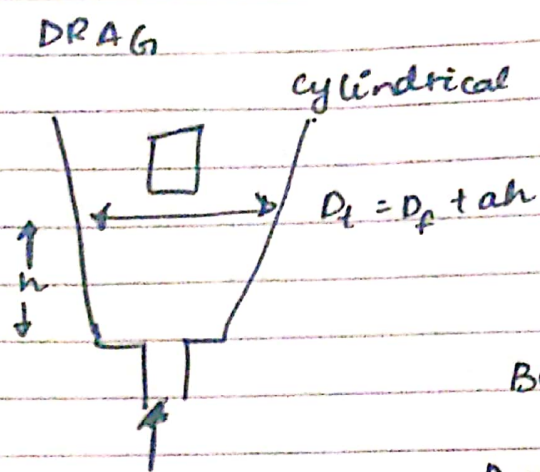 DRAG
cylindrical
D_t = D_f + ah
h
B